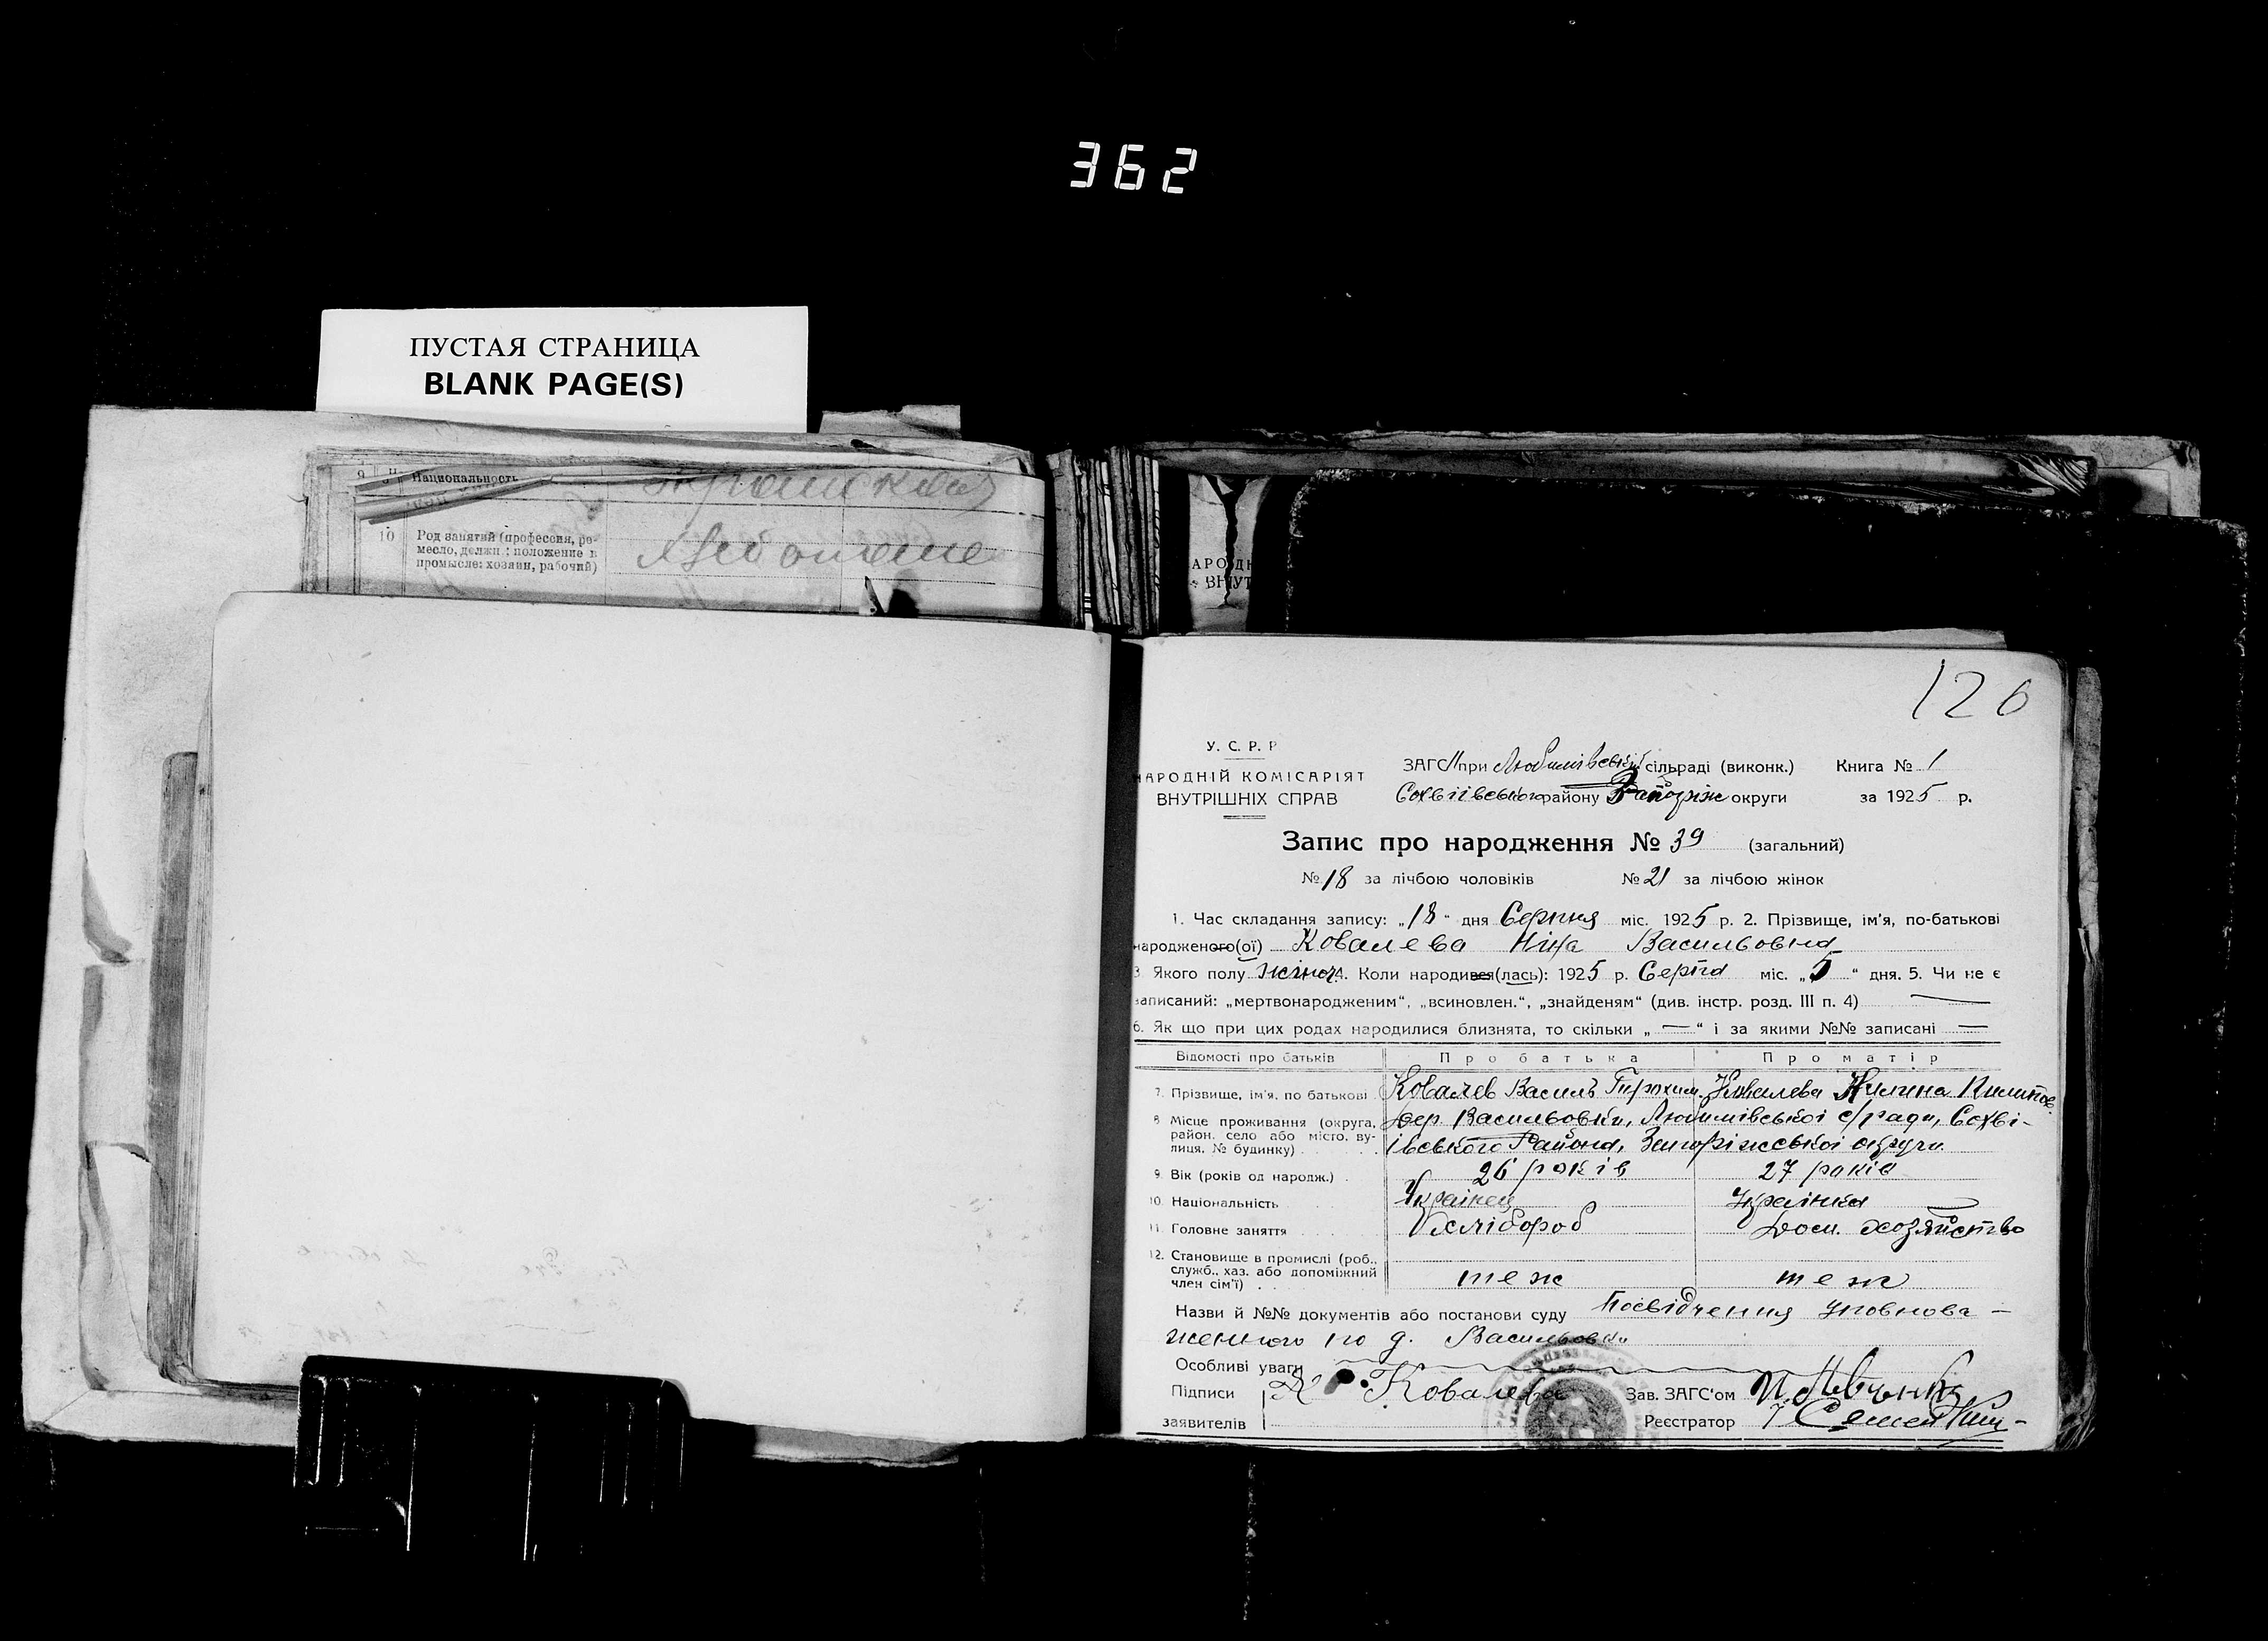 362
ПУСТАЯ СТРАНИЦА
BLANK PAGE(S)
Национальность
10 Род занятий (профессия, ре-
месло, должн.; положение в
промысле: хозяин, рабочий)
126
У. С. Р. Р
НАРОДНІЙ КОМІСАРІЯТ
ВНУТРІШНІХ СПРАВ
ЗАГС при Любимівській сільраді (виконк.) Книга № 1
Софіївського району Запоріж округи за 1925 р.
Запис про народження № 39 (загальний)
№ 18 за лічбою чоловіків № 21 за лічбою жінок
1. Час складання запису: „18" дня Серпня міс. 1925 р. 2. Прізвище, ім'я, по-батькові
народженого(ої) Ковалева Ніна Васильовна
3. Якого полу жіноч. 4. Коли народився(лась): 1925 р. Серпня міс. „5" дня. 5. Чи не є
записаний: „мертвонародженим", „всиновлен.", „знайденям" (див. інстр. розд. III п. 4) —
6. Як що при цих родах народилися близнята, то скільки „—" і за якими №№ записані —
Відомості про батьків Про батька Про матір
7. Прізвище, ім'я, по батькові Ковалев Василь Ковалева
8 Місце проживання (округа, дер. Васильовки, Любимівської с/ради, Сохві-
район, село або місто, ву- івського Района, Запоріжської округи
лиця, № будинку)
9. Вік (років од народж.) 26 років 27 років
10. Національність Українец Українка
11. Головне заняття Хлібороб Дом. хозяйство
12. Становище в промислі (роб.,
служб., хаз. або допоміжний
член сім'ї) теж теж
Назви й №№ документів або постанови суду Посвідчення уповнова-
женного по д. Васильовки
Особливі уваги
Підписи Ковалев Зав. ЗАГС'ом
заявителів Реєстратор